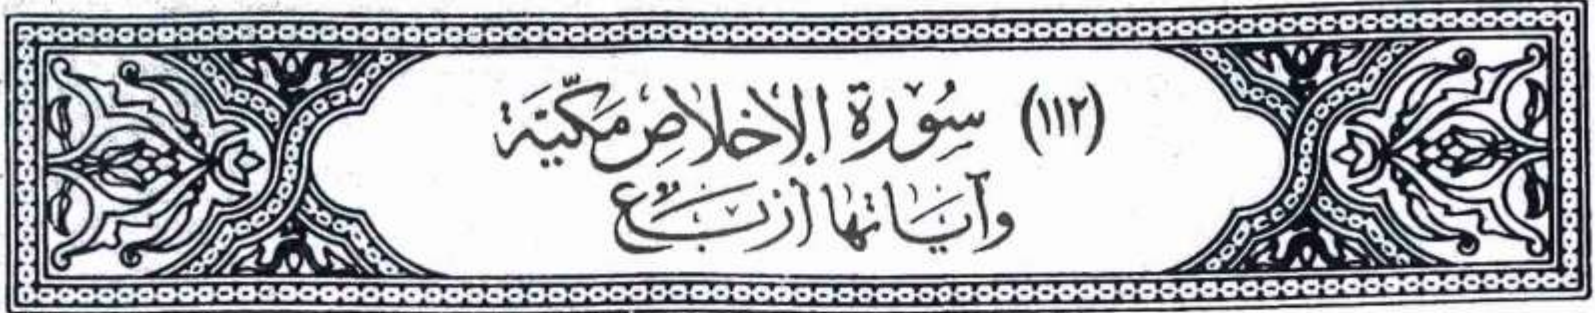 (١١٢) سُوْرَة الإخلاصِ مَكيَّة
وآيَاتها أَرْبَع